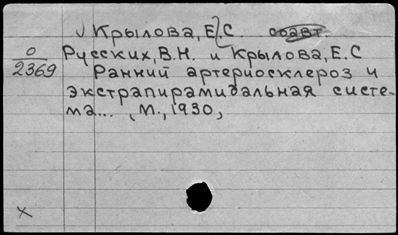 Крылова, Е.С. соавт.
О
2369
Русских, В.Н. и Крылова, Е.С
Ранний артериосклероз и
экстрапирамидальная систе-
ма... , М., 1930,
х